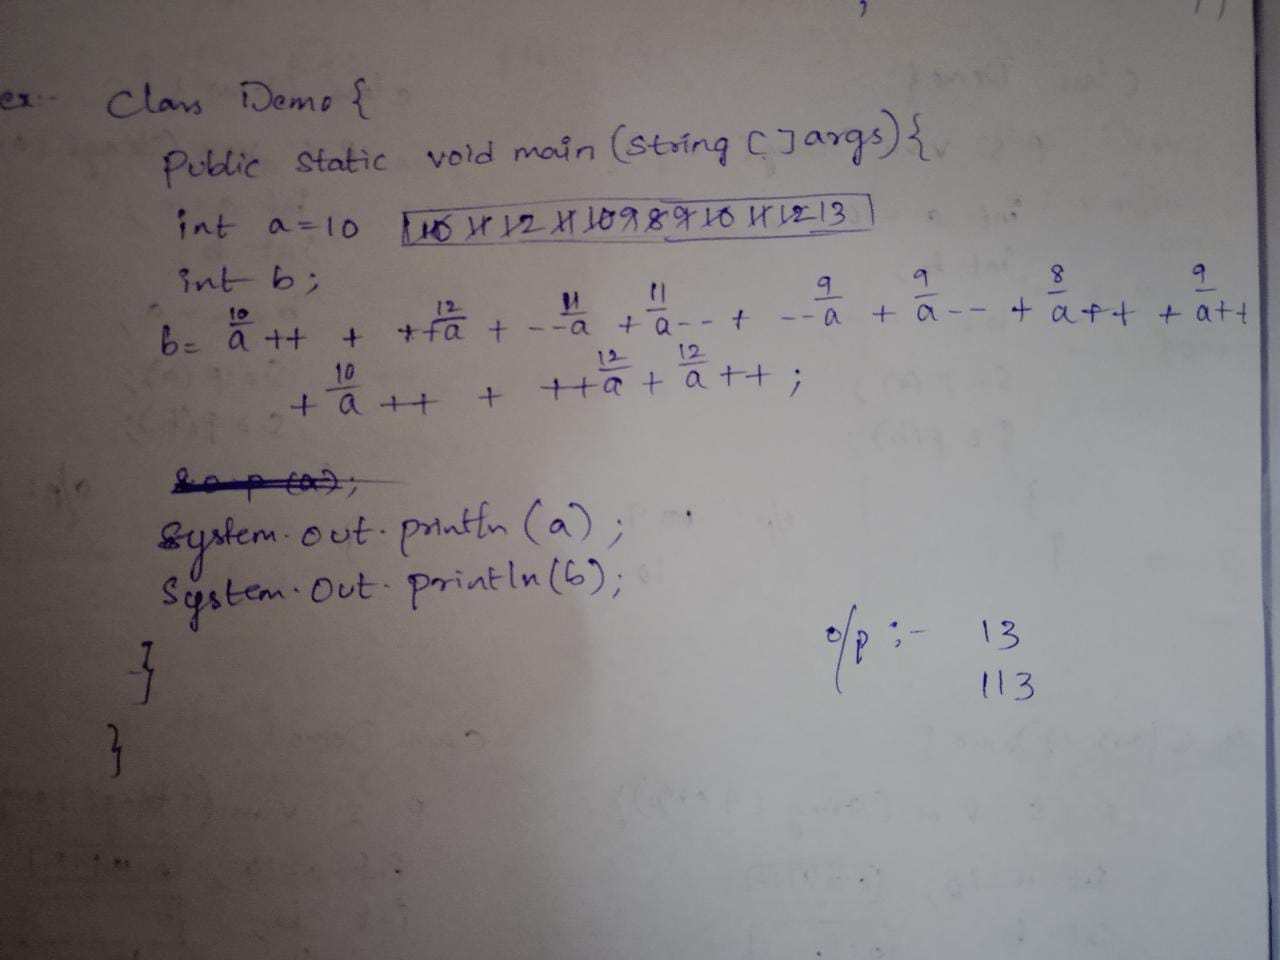 ex:- Class Demo {
Public static void main (String [] args) {
int a=10 10 11 12 11 10 9 8 9 10 11 12 13
int b;
10 12 11 11 9 9 8 9
b= a ++ + ++a + --a + a-- + --a + a-- + a++ + a++
10 12 12
+ a ++ + ++a + a ++ ;
S.o.p (a);
System.out.println (a) ;
System.Out.println(b);
o/p :- 13
}
113
}